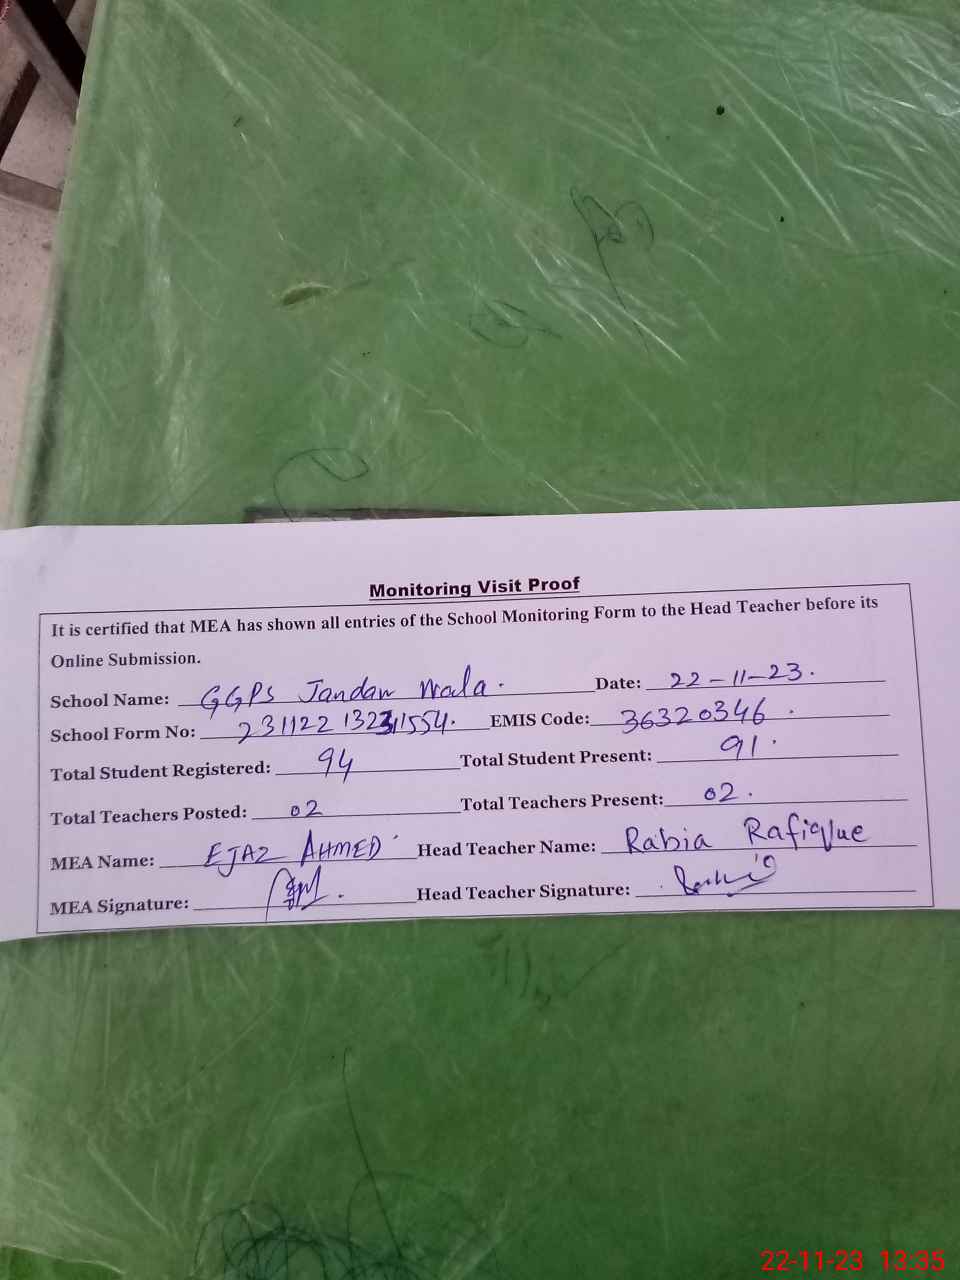 Monitoring Visit Proof
It is certified that MEA has shown all entries of the School Monitoring Form to the Head Teacher before its
Online Submission.
School Name: GGPS Jandan Wala. Date: 22-11-23.
School Form No: EMIS Code: 36320346.
Total Student Registered: 94 Total Student Present: 91.
Total Teachers Posted: 02 Total Teachers Present: 02.
MEA Name: EJAZ AHMED Head Teacher Name: Rabia Rafique
MEA Signature: Head Teacher Signature:
22-11-23 13:35